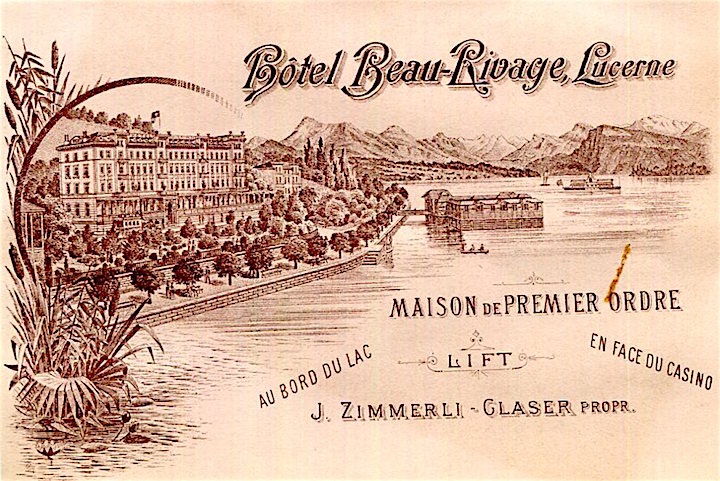 Hôtel Beau-Rivage, Lucerne
MAISON DE PREMIER ORDRE
AU BORD DU LAC
LIFT
EN FACE DU CASINO
J. ZIMMERLI - GLASER PROPR.